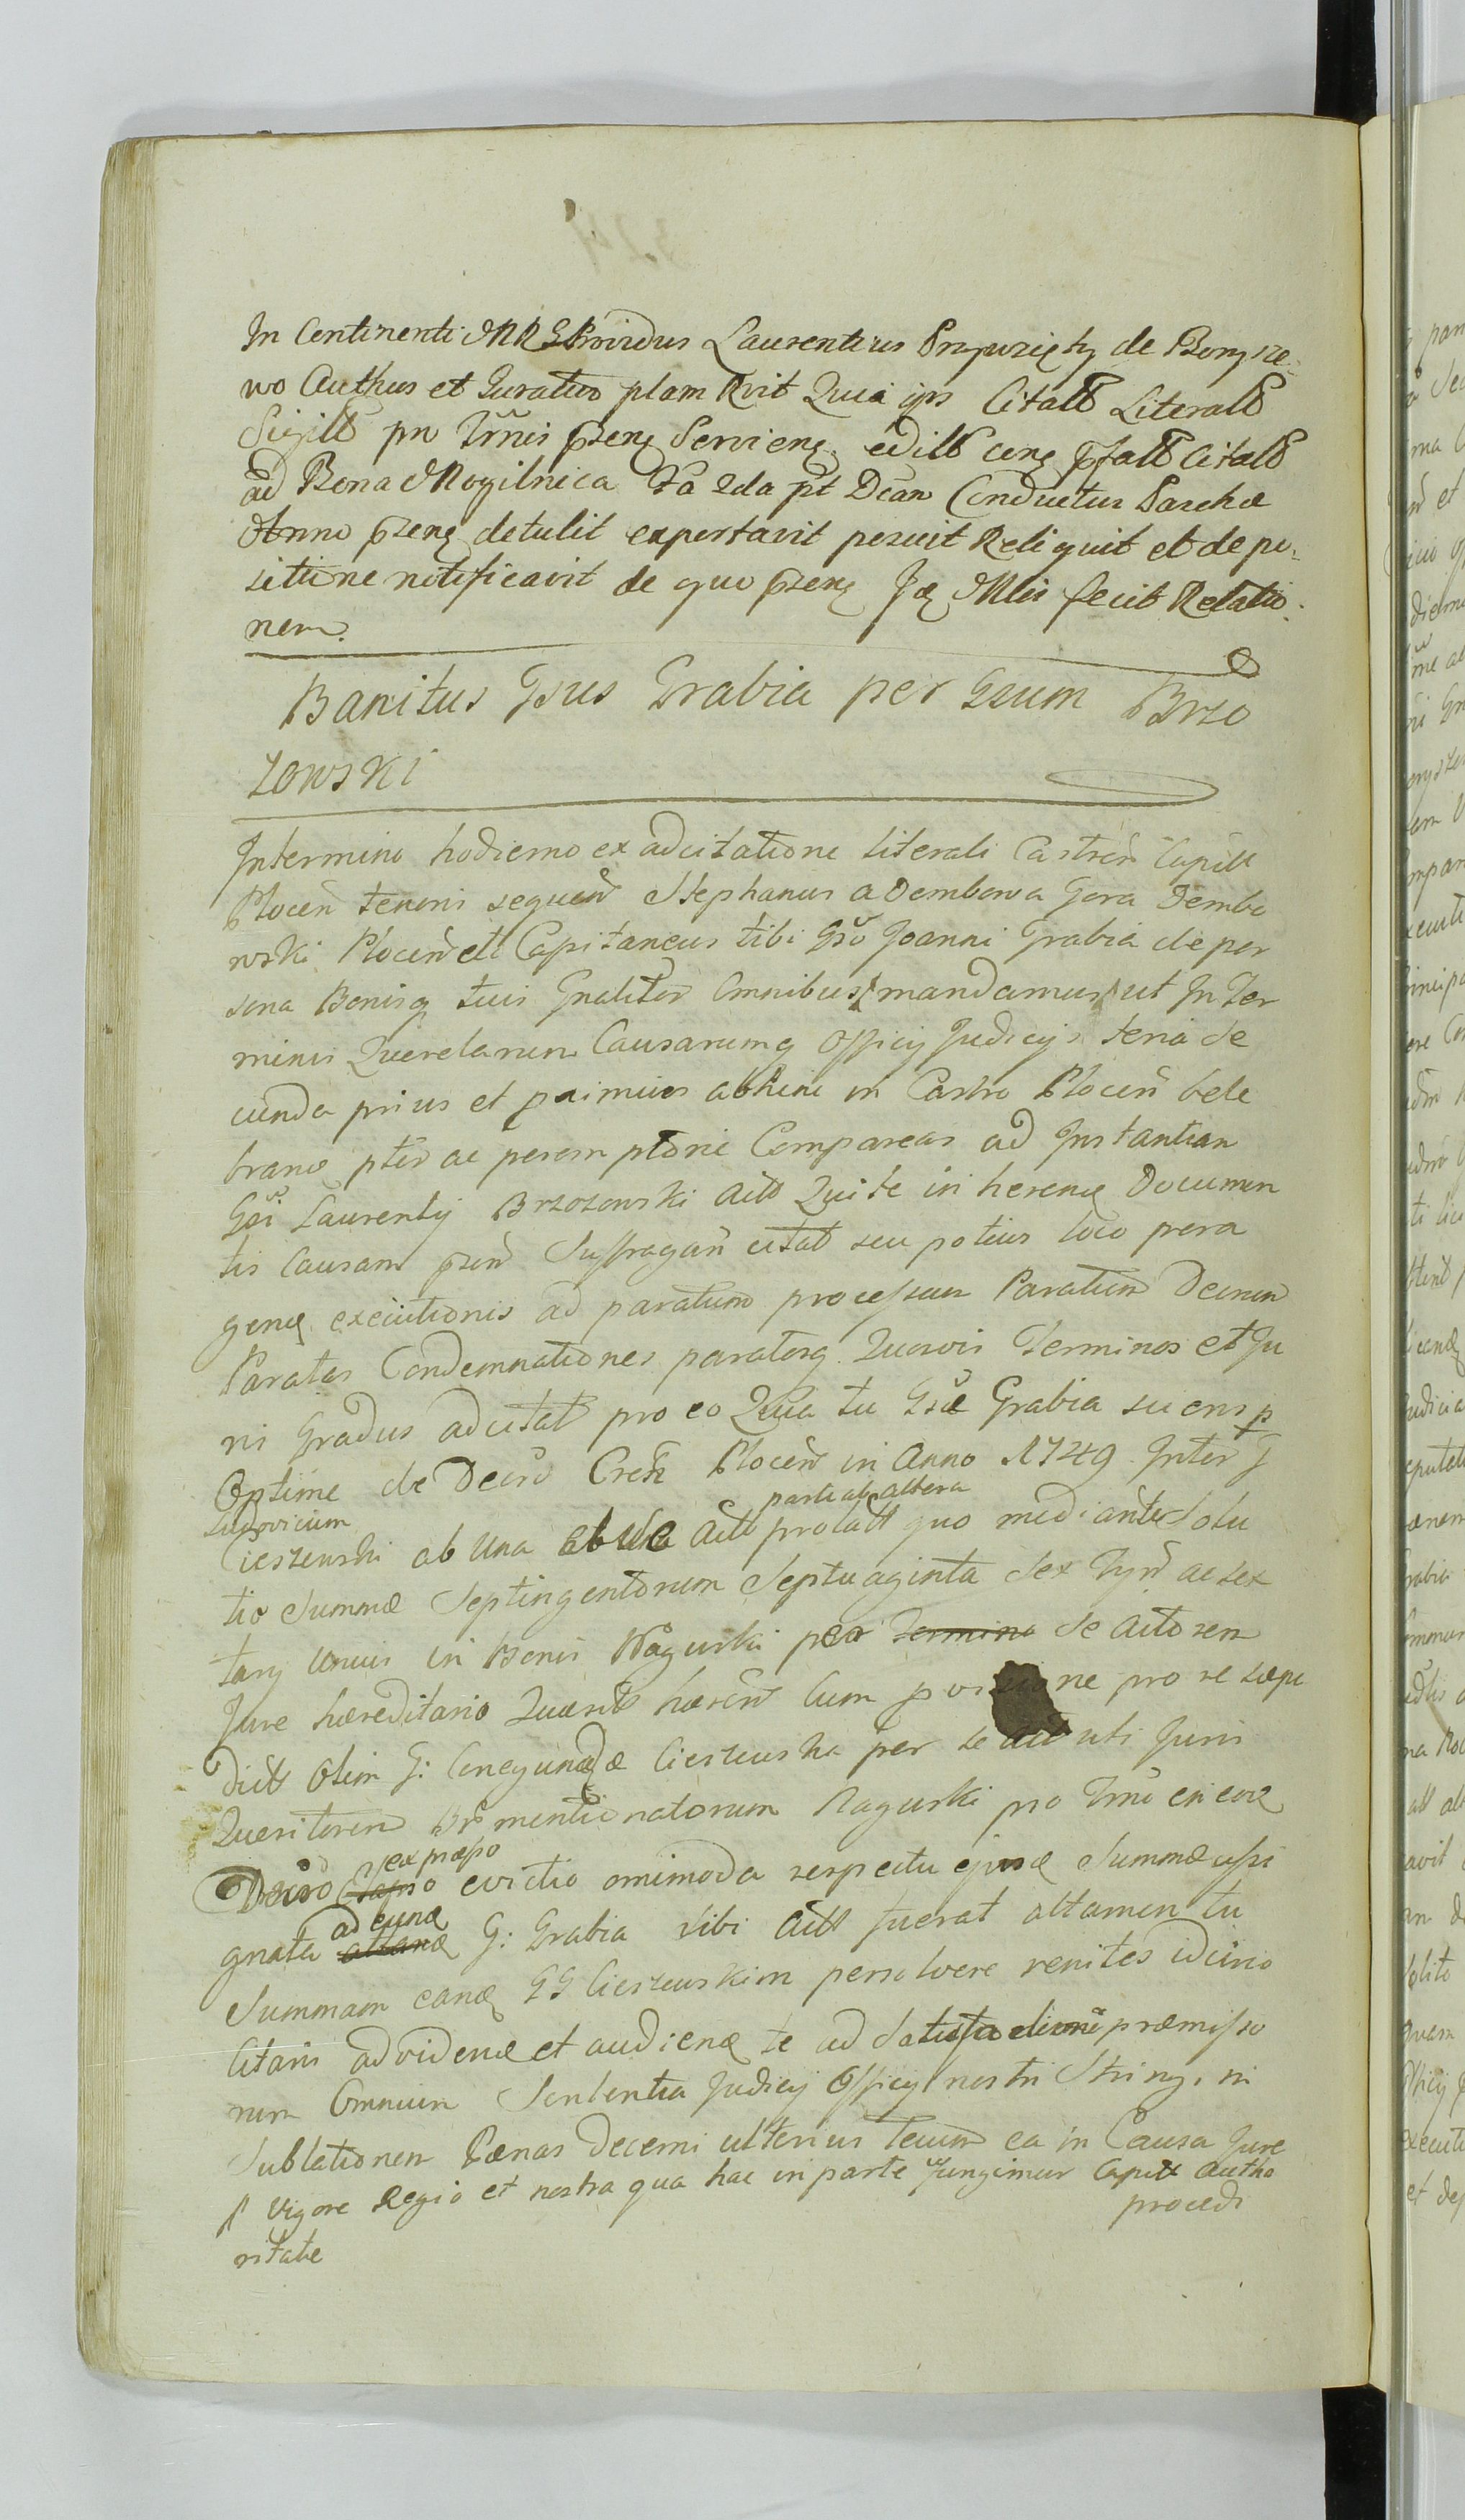 In Continenti MRS Providus Laurentius Przywizęty de Borysze=
wo Authus et Juratus plam Rvit Quia ips Citatt Literatt
Sigillt pn Trnis psenę Servienę editt cenę pfatt Citatt
ad Bona Mogilnica Fa 2da pt Dcan Conductus Paschæ
Anno psenę detulit exportavit posuit Reliquit et de po=
sitione notificavit de quo psenę Jæ Mlis fecit Relatio=
nem.
Banitus Gsus Grabia per Gsum Brzo
zowski
In termino hodierno ex adcitatione literali Castren Capitt
Plocen tenoris sequen Stephanus a Dembowa Gora Dembo
wski Plocen ett Capitaneus tibi Gso Joanni Grabia de per
sona Bonisq tuis Gnaliter Omnibus mandamus ut In Ter
minis Querelarum Causarumq Officij Judicijs feria se
cunda prius et primius abhinc in Castro Plocen cele
branę pter ac peremptorie Compareas ad Instantiam
Gsi Laurentij Brzozowski Actt Qui te in herenę Documen
tis Causam psen Suffragan citat seu potius loco pera
genę executionis ad paratum processum Paratum Decrum
Paratas Condemnationes paratosq Quosvis Terminos et Ju
ris Gradus adcitat pro eo Quia tu Gse Grabia sciens p
Optime de Decro Cren Plocen in Anno 1749 Inter G
Ludovicum
parte ab altera
Cieszewski ab Una Actt prolatt quo mediante Solu
tio Summæ Septingentorum Septuaginta Sex Tyn ac sex
tarij Unius in Bonis Nagurki per Termino se Actorem
Jure hæreditario Quæsitt hæren Cum pors ne pro se sæpe
dictt Olim G: Cunegundæ Cieszewska per se Actt uti Juris
Quæsitorem Br mentionatorum Nagurki pro Trno in eoæ
ex præpo
Decro evictio omimoda respectu ejusæ Summæ assi
ad eunæ
gnata G: Grabia sibi Actt fuerat attamen tu
Summam eanæ GG Cieszewskim persolvere renites idcirco
Citaris ad videnæ et audienæ te ad Satisfactionē præmisso
rum Omnium Sententia Judicij Officij nostri Stringi in
Sublationem Pænas Decerni ulterius Tecum ea in Causa Jure
procedi
Vigore Regio et nostra qua hac in parte fungimur Capitt autho
ritate